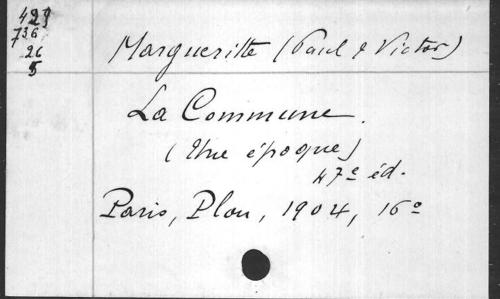 429
736
26
5
Margueritte (Paul & Victor)
La Commune.
(Une époque)
47e éd.
Paris, Plon, 1904, 16o